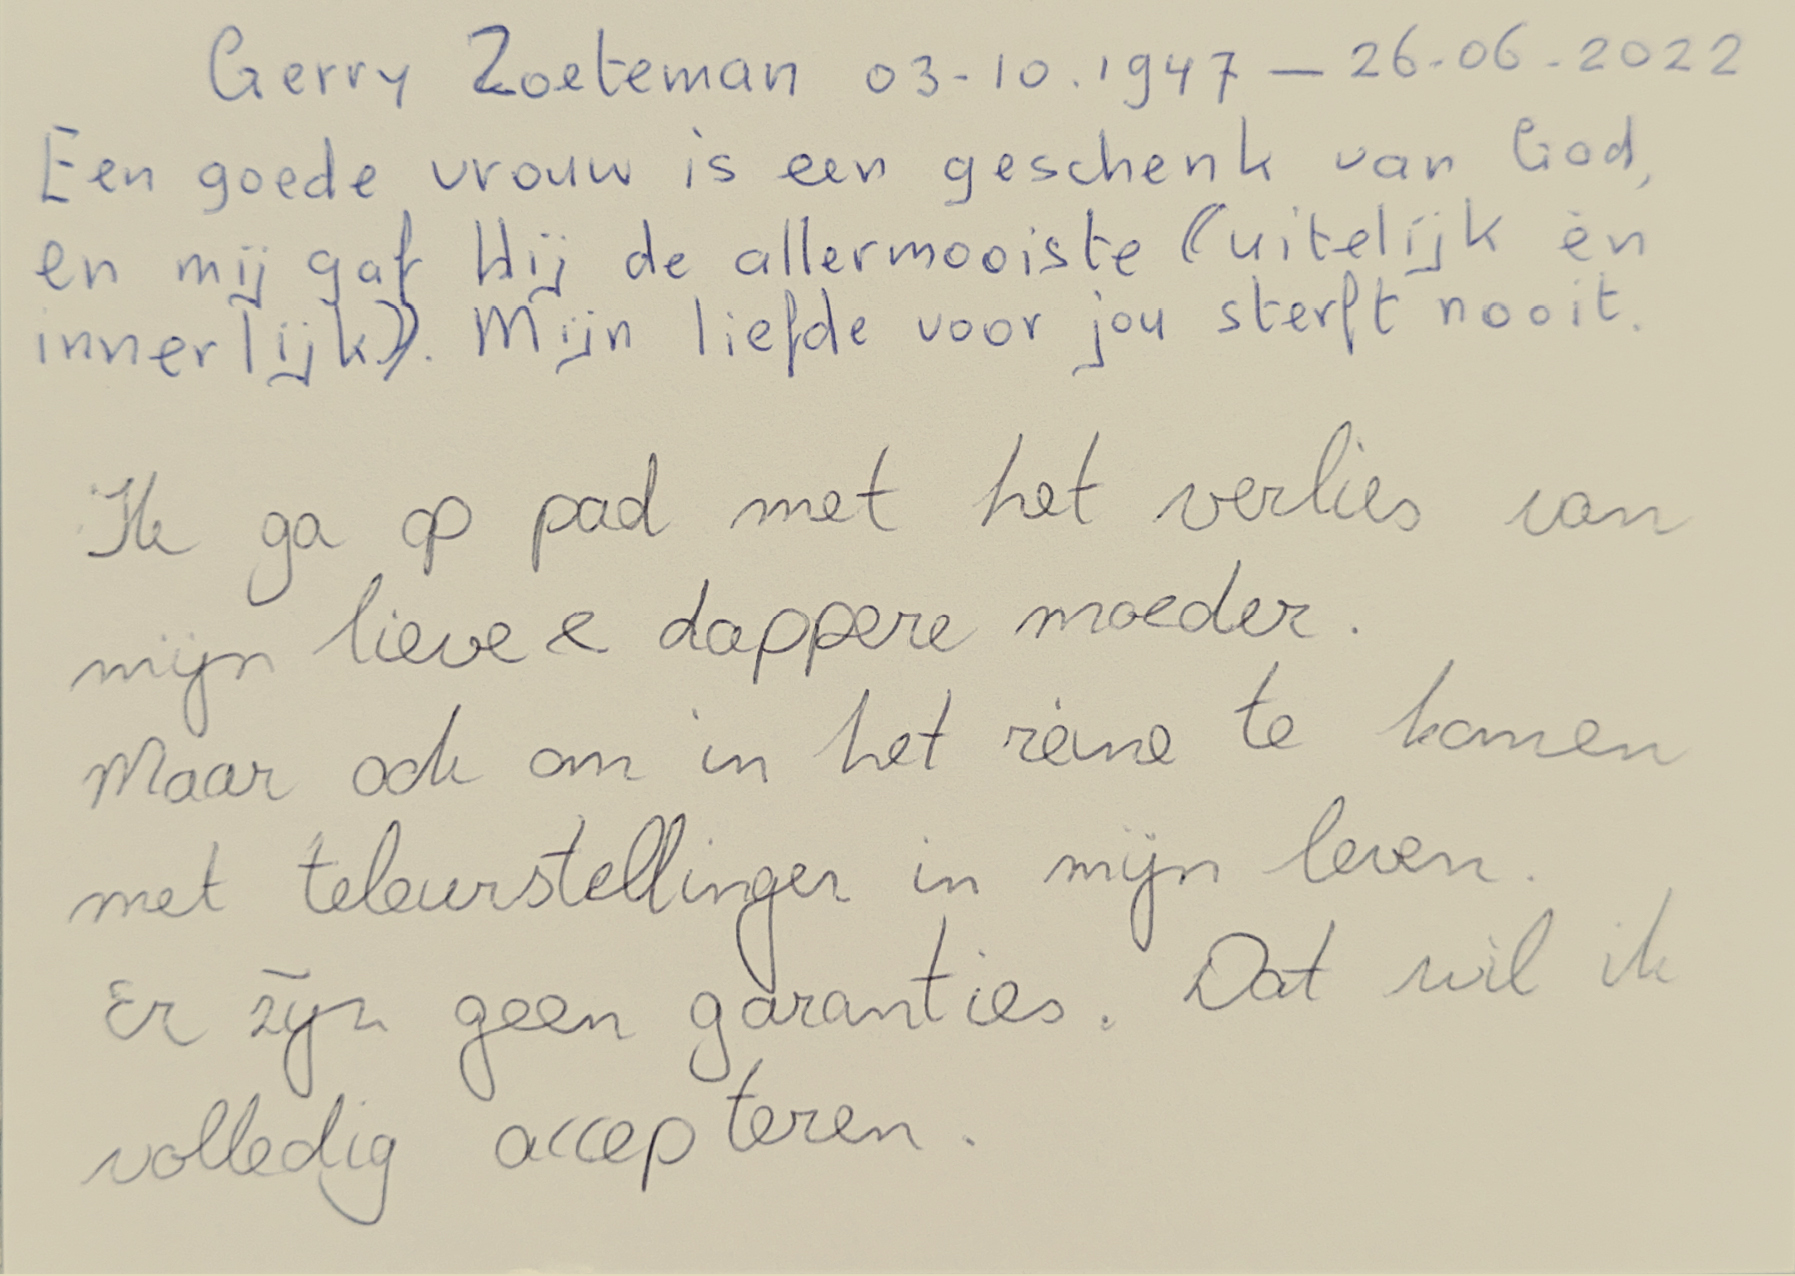 Gerry Zoeteman 03-10.1947 — 26-06-2022
Een goede vrouw is een geschenk van God,
en mij gaf Hij de allermooiste (uitelijk èn
innerlijk). Mijn liefde voor jou sterft nooit.
Ik ga op pad met het verlies van
mijn lieve & dappere moeder.
Maar ook om in het reine te komen
met teleurstellingen in mijn leven.
Er zijn geen garanties. Dat wil ik
volledig accepteren.